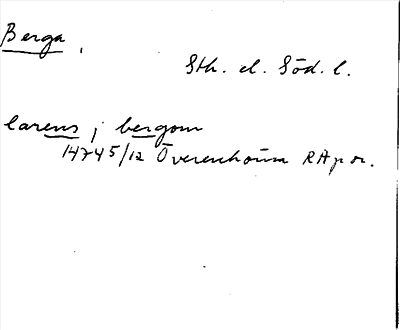 Berga,
Sth. el. Söd. l.
larens j bergom
14745/12 Överenhörna RAp or.